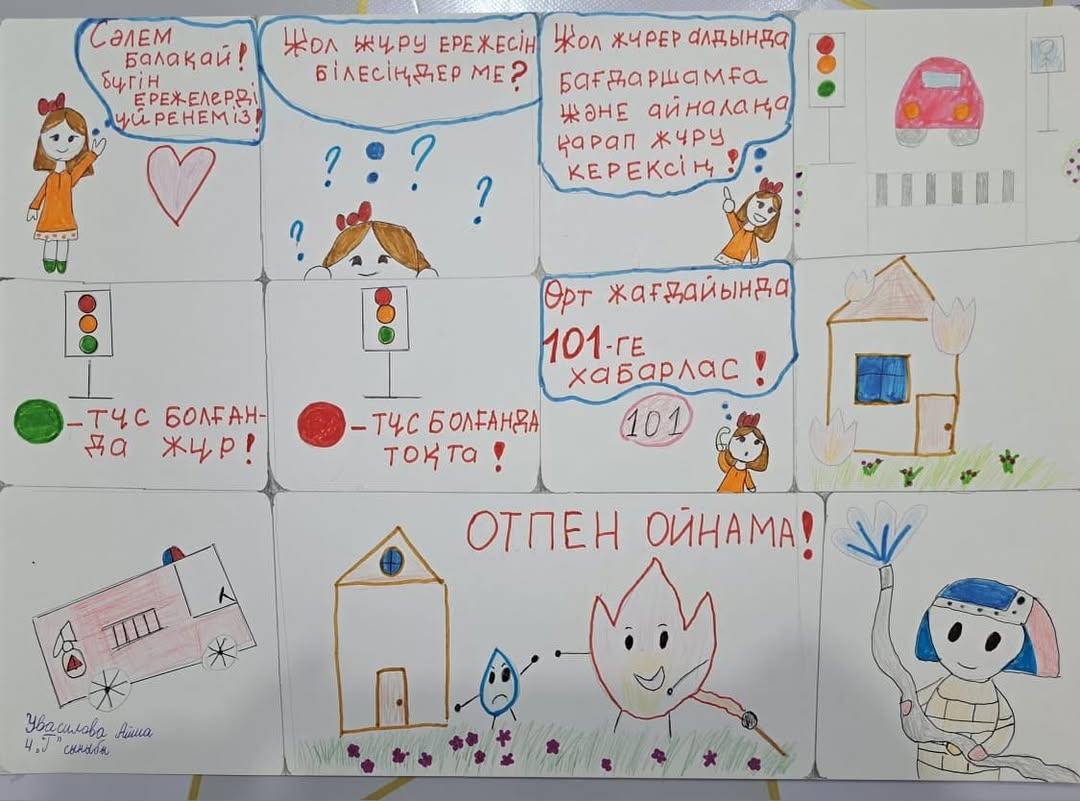 СӘЛЕМ
БАЛАҚАЙ!
БҮГІН
ЕРЕЖЕЛЕРДІ
ҮЙРЕНЕМІЗ!
ЖОЛ ЖҮРУ ЕРЕЖЕСІН
БІЛЕСІҢДЕР МЕ?
? ? ? ?
ЖОЛ ЖҮРЕР АЛДЫНДА
БАҒДАРШАМҒА
ЖӘНЕ АЙНАЛАҢА
ҚАРАП ЖҮРУ
КЕРЕКСІҢ!
– ТҮС БОЛҒАН-
ДА ЖҮР!
– ТҮС БОЛҒАНДА
ТОҚТА!
ӨРТ ЖАҒДАЙЫНДА
101-ГЕ
ХАБАРЛАС!
101
Увасилова Айша
4 „Г" сыныбы
ОТПЕН ОЙНАМА!